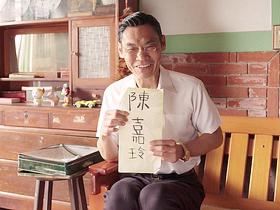 陳
嘉
玲